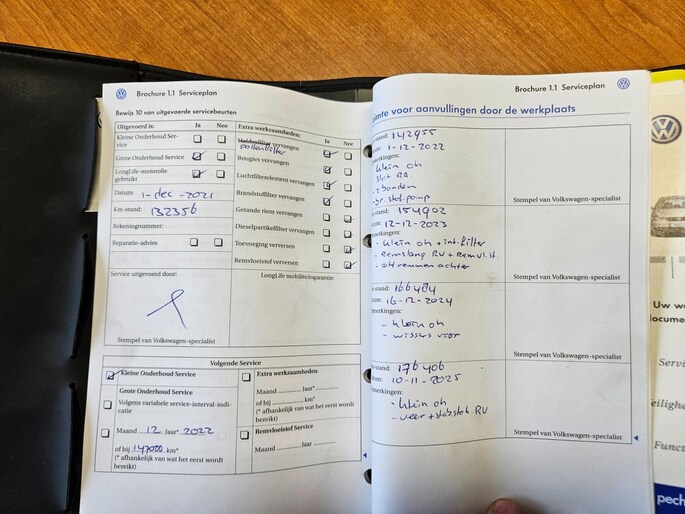 Brochure 1.1 Serviceplan
Bewijs 10 van uitgevoerde servicebeurten
Uitgevoerd is: Ja Nee
Kleine Onderhoud Ser-
vice
Grote Onderhoud Service
LongLife-motorolie
gebruikt
Datum: 1-dec-2021
Km-stand: 132356
Rekeningnummer:
Reparatie-advies
Extra werkzaamheden: Ja Nee
pollenfilter vervangen
Bougies vervangen
Luchtfilterelement vervangen
Brandstoffilter vervangen
Getande riem vervangen
Dieselpartikelfilter vervangen
Toevoeging verversen
Remvloeistof verversen
Service uitgevoerd door:
LongLife mobiliteitsgarantie:
Stempel van Volkswagen-specialist
Volgende Service
Kleine Onderhoud Service
Grote Onderhoud Service
Volgens variabele service-interval-indi-
catie
Maand 12 Jaar* 2022
of bij 147000 km*
(* afhankelijk van wat het eerst wordt
bereikt)
Extra werkzaamheden
Maand Jaar*
of bij km*
(* afhankelijk van wat het eerst wordt
bereikt)
Remvloeistof Service
Maand Jaar*
Brochure 1.1 Serviceplan
imte voor aanvullingen door de werkplaats
-stand: 142955
1-12-2022
merkingen:
klein oh
Stempel van Volkswagen-specialist
-stand: 154902
12-12-2023
merkingen:
- klein oh + int.filter
- remslang RV + remvlst.
achter
Stempel van Volkswagen-specialist
-stand: 166484
16-12-2024
merkingen:
- klein oh
- wissers voor
Stempel van Volkswagen-specialist
-stand: 176406
tum: 10-11-2025
merkingen:
- klein oh
- veer + stabstab RV
Stempel van Volkswagen-specialist
Uw w
docume
Servi
Veilighe
Funct
pech